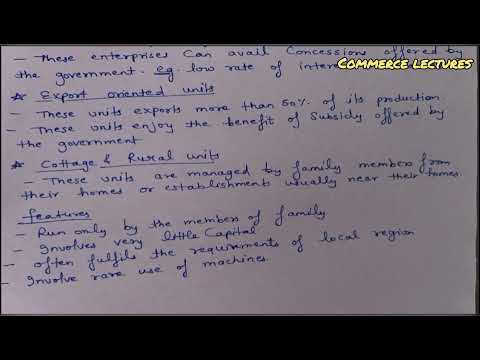 - These enterprises Can avail Concession offered by
the government. eg. low rate of
Commerce lectures
☆ Export oriented units
- These units exports more than 50% of its production.
- These units enjoy the benefit of Subsidy offered by
the government
☆ Cottage & Rural units
- These units are managed by family members from
their homes or establishments usually near their homes.
features
- Run only by the members of family
- Involves very little Capital
- often fulfils the requirements of local region
- Involve rare use of machines.